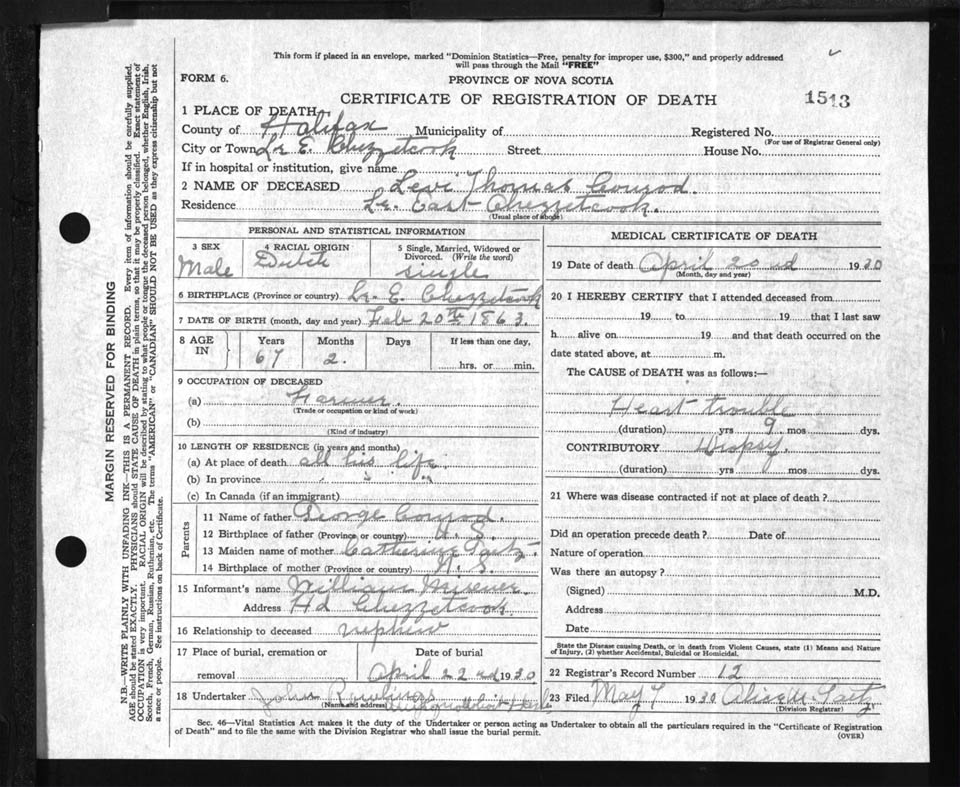 This form if placed in an envelope, marked "Dominion Statistics—Free, penalty for improper use, $300," and properly addressed
will pass through the Mail "FREE"
FORM 6.
PROVINCE OF NOVA SCOTIA
CERTIFICATE OF REGISTRATION OF DEATH
1513
1 PLACE OF DEATH—
County of Halifax Municipality of Registered No.
(For use of Registrar General only)
City or Town Lr E. Chezzetcook Street House No.
If in hospital or institution, give name
2 NAME OF DECEASED Levi Thomas Conrod.
Residence Lr. East Chezzetcook.
(Usual place of abode)
PERSONAL AND STATISTICAL INFORMATION
3 SEX 4 RACIAL ORIGIN 5 Single, Married, Widowed or
Divorced. (Write the word)
Male Dutch single
6 BIRTHPLACE (Province or country) Lr. E. Chezzetcook
7 DATE OF BIRTH (month, day and year) Feb 20th 1863.
8 AGE IN Years Months Days If less than one day,
67 2. hrs. or min.
9 OCCUPATION OF DECEASED
(a) Farmer
(Trade or occupation or kind of work)
(b)
(Kind of industry)
10 LENGTH OF RESIDENCE (in years and months)
(a) At place of death all his life.
(b) In province " " "
(c) In Canada (if an immigrant)
Parents
11 Name of father George Conrod.
12 Birthplace of father (Province or country) N. S.
13 Maiden name of mother Catherine Gaetz.
14 Birthplace of mother (Province or country) N. S.
15 Informant's name William Misener
Address Hd Chezzetcook.
16 Relationship to deceased nephew
17 Place of burial, cremation or Date of burial
removal April 22nd 1930
18 Undertaker John Rawlings
(Name and address) Musquodoboit
MEDICAL CERTIFICATE OF DEATH
19 Date of death April 20nd 1930
(Month, day and year)
20 I HEREBY CERTIFY that I attended deceased from
19 to 19 that I last saw
h alive on 19 and that death occurred on the
date stated above, at m.
The CAUSE of DEATH was as follows:—
Heart trouble
(duration) yrs 9 mos dys.
CONTRIBUTORY Dropsy.
(duration) yrs mos dys.
21 Where was disease contracted if not at place of death?
Did an operation precede death? Date of
Nature of operation
Was there an autopsy?
(Signed) M.D.
Address
Date
State the Disease causing Death, or in death from Violent Causes, state (1) Means and Nature
of Injury, (2) whether Accidental, Suicidal or Homicidal.
22 Registrar's Record Number 12
23 Filed May 7 1930 Alice M Gaetz
(Division Registrar)
Sec. 46—Vital Statistics Act makes it the duty of the Undertaker or person acting as Undertaker to obtain all the particulars required in the "Certificate of Registration
of Death" and to file the same with the Division Registrar who shall issue the burial permit.
(OVER)
MARGIN RESERVED FOR BINDING
N.B.—WRITE PLAINLY WITH UNFADING INK—THIS IS A PERMANENT RECORD. Every item of information should be carefully supplied.
AGE should be stated EXACTLY. PHYSICIANS should STATE CAUSE OF DEATH in plain terms, so that it may be properly classified. Exact statement of
OCCUPATION is very important. RACIAL ORIGIN will be described by stating to what people or tongue the deceased person belonged, whether English, Irish,
Scotch, French, German, Russian, Ruthenian, etc. The terms "AMERICAN" or "CANADIAN" SHOULD NOT BE USED as they express citizenship but not
a race or people. See instructions on back of Certificate.